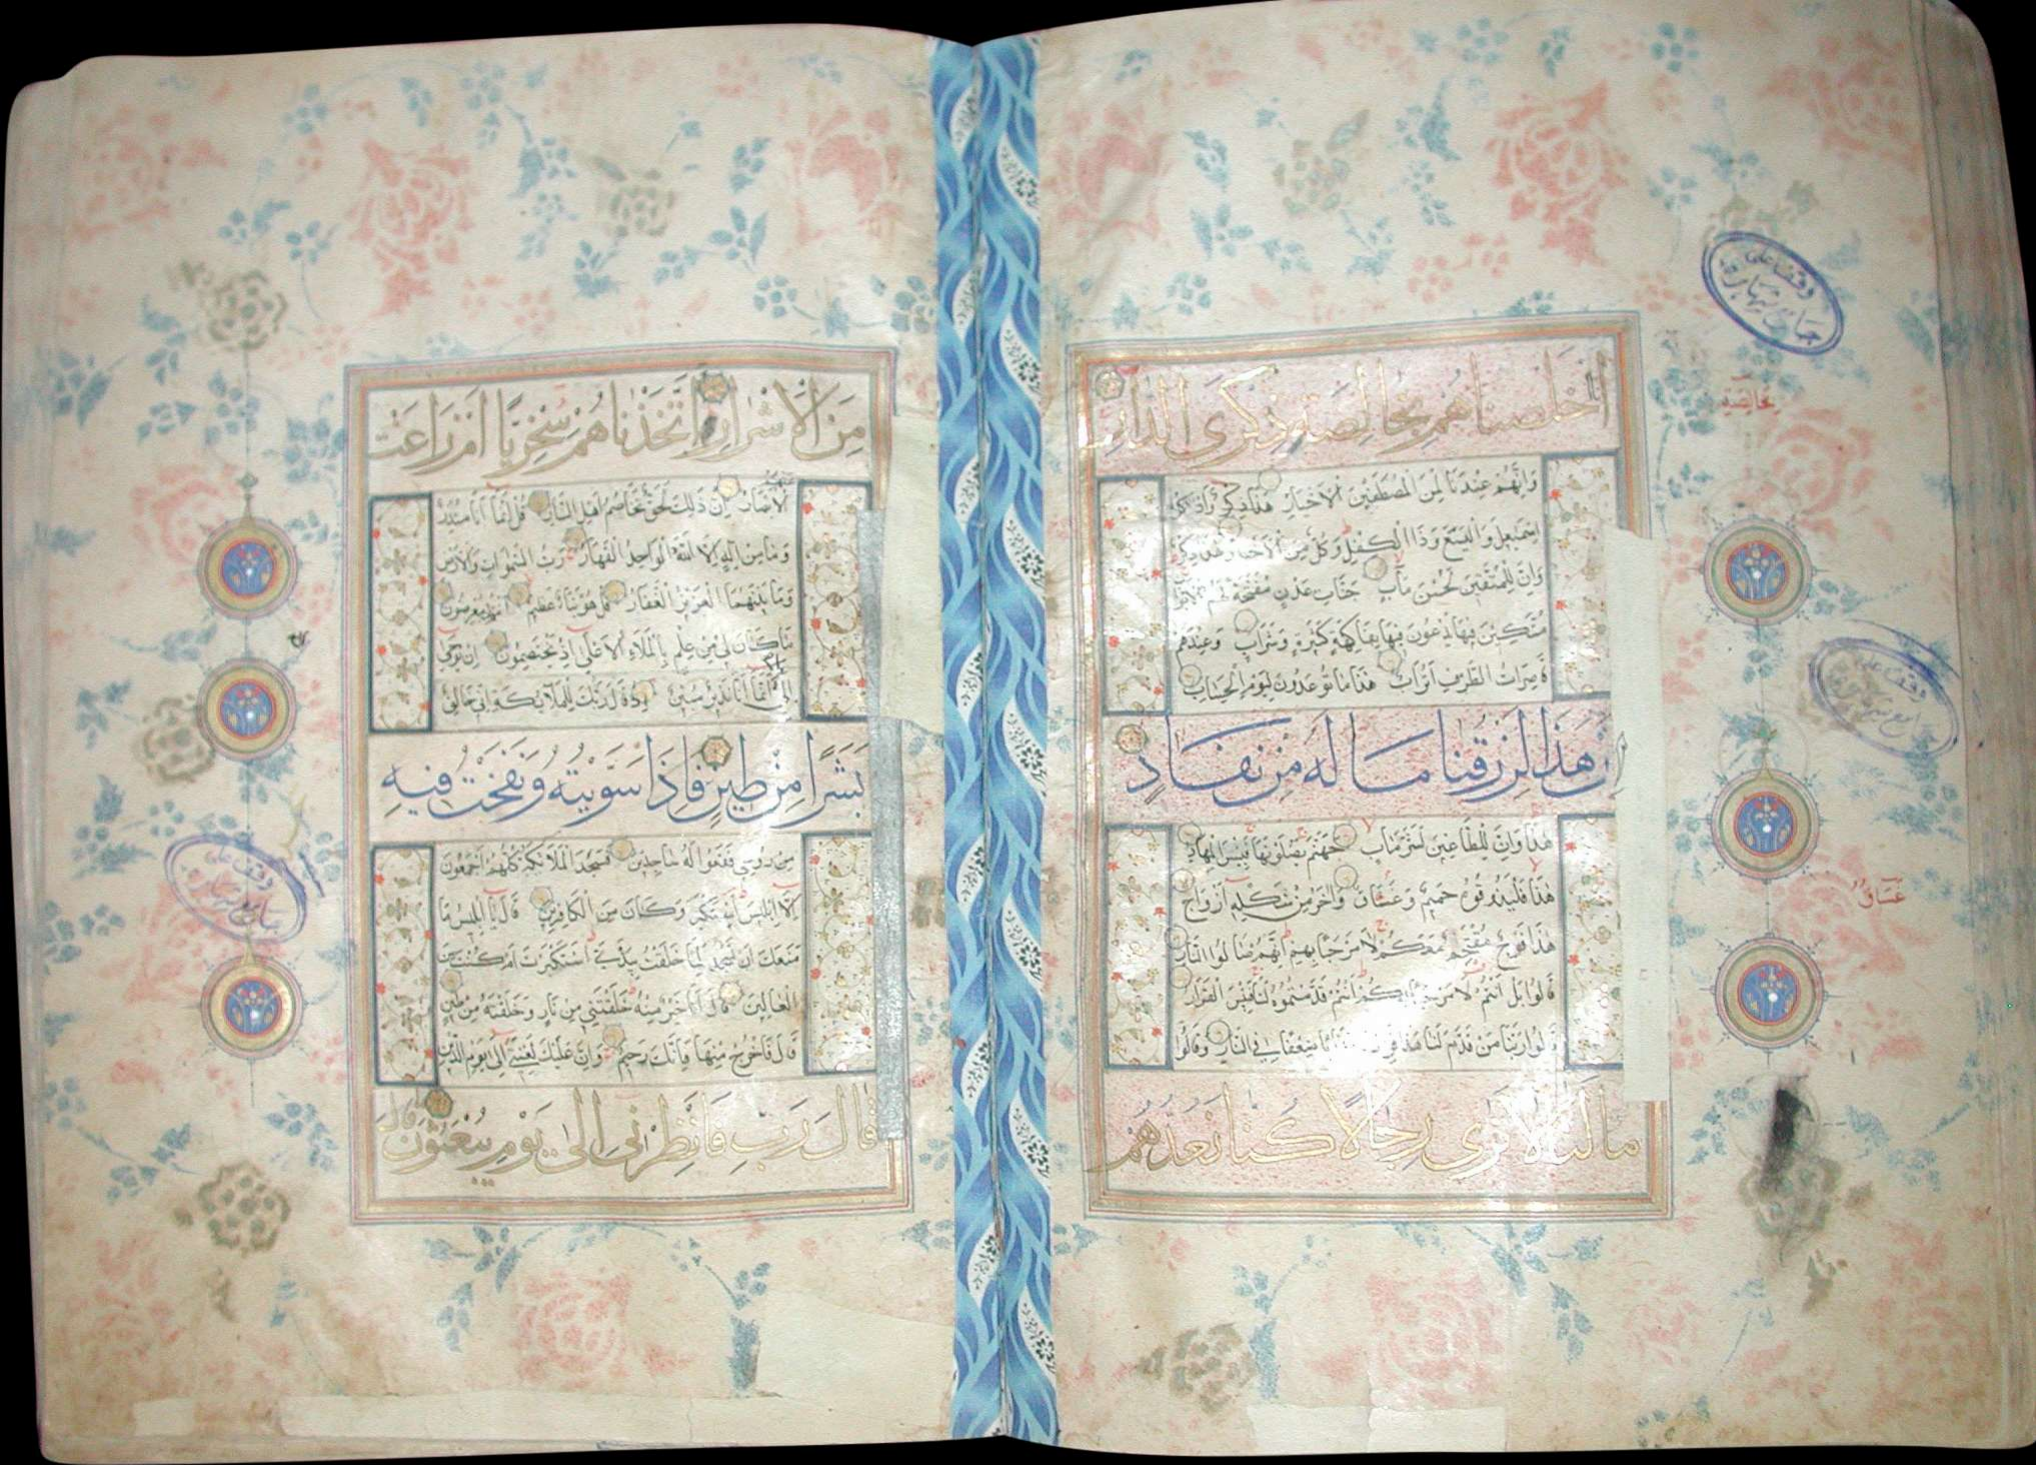 اخلصناهم بخالصة ذكرى الدار
وانهم عندنا لمن المصطفين الاخيار هذا ذكر واذكر
اسمعيل واليسع وذا الكفل وكل من الاخيار هذا ذكر
وان للمتقين لحسن ماب جنات عدن مفتحة لهم الابواب
متكئين فيها يدعون فيها بفاكهة كثيرة وشراب وعندهم
قاصرات الطرف اتراب هذا ما توعدون ليوم الحساب
ان هذا لرزقنا ما له من نفاد
هذا وان للطاغين لشر ماب جهنم يصلونها فبئس المهاد
هذا فليذوقوه حميم وغساق واخر من شكله ازواج
هذا فوج مقتحم معكم لا مرحبا بهم انهم صالوا النار
قالوا بل انتم لا مرحبا بكم انتم قدمتموه لنا فبئس القرار
قالوا ربنا من قدم لنا هذا فزده عذابا ضعفا في النار وقالوا
ما لنا لا نرى رجالا كنا نعدهم
وقف على
جامع
خالصة
وقف على
جامع
غساق
من الاشرار اتخذناهم سخريا ام زاغت
الابصار ان ذلك لحق تخاصم اهل النار قل انما انا منذر
وما من اله الا الله الواحد القهار رب السموات والارض
وما بينهما العزيز الغفار قل هو نبأ عظيم انتم عنه معرضون
ما كان لي من علم بالملاء الاعلى اذ يختصمون ان يوحى
الي الا انما انا نذير مبين اذ قال ربك للملائكة اني خالق
بشرا من طين فاذا سويته ونفخت فيه
من روحي فقعوا له ساجدين فسجد الملائكة كلهم اجمعون
الا ابليس استكبر وكان من الكافرين قال يا ابليس ما
منعك ان تسجد لما خلقت بيدي استكبرت ام كنت من
العالين قال انا خير منه خلقتني من نار وخلقته من طين
قال فاخرج منها فانك رجيم وان عليك لعنتي الى يوم الدين
قال رب فانظرني الى يوم يبعثون قال
وقف على
جامع